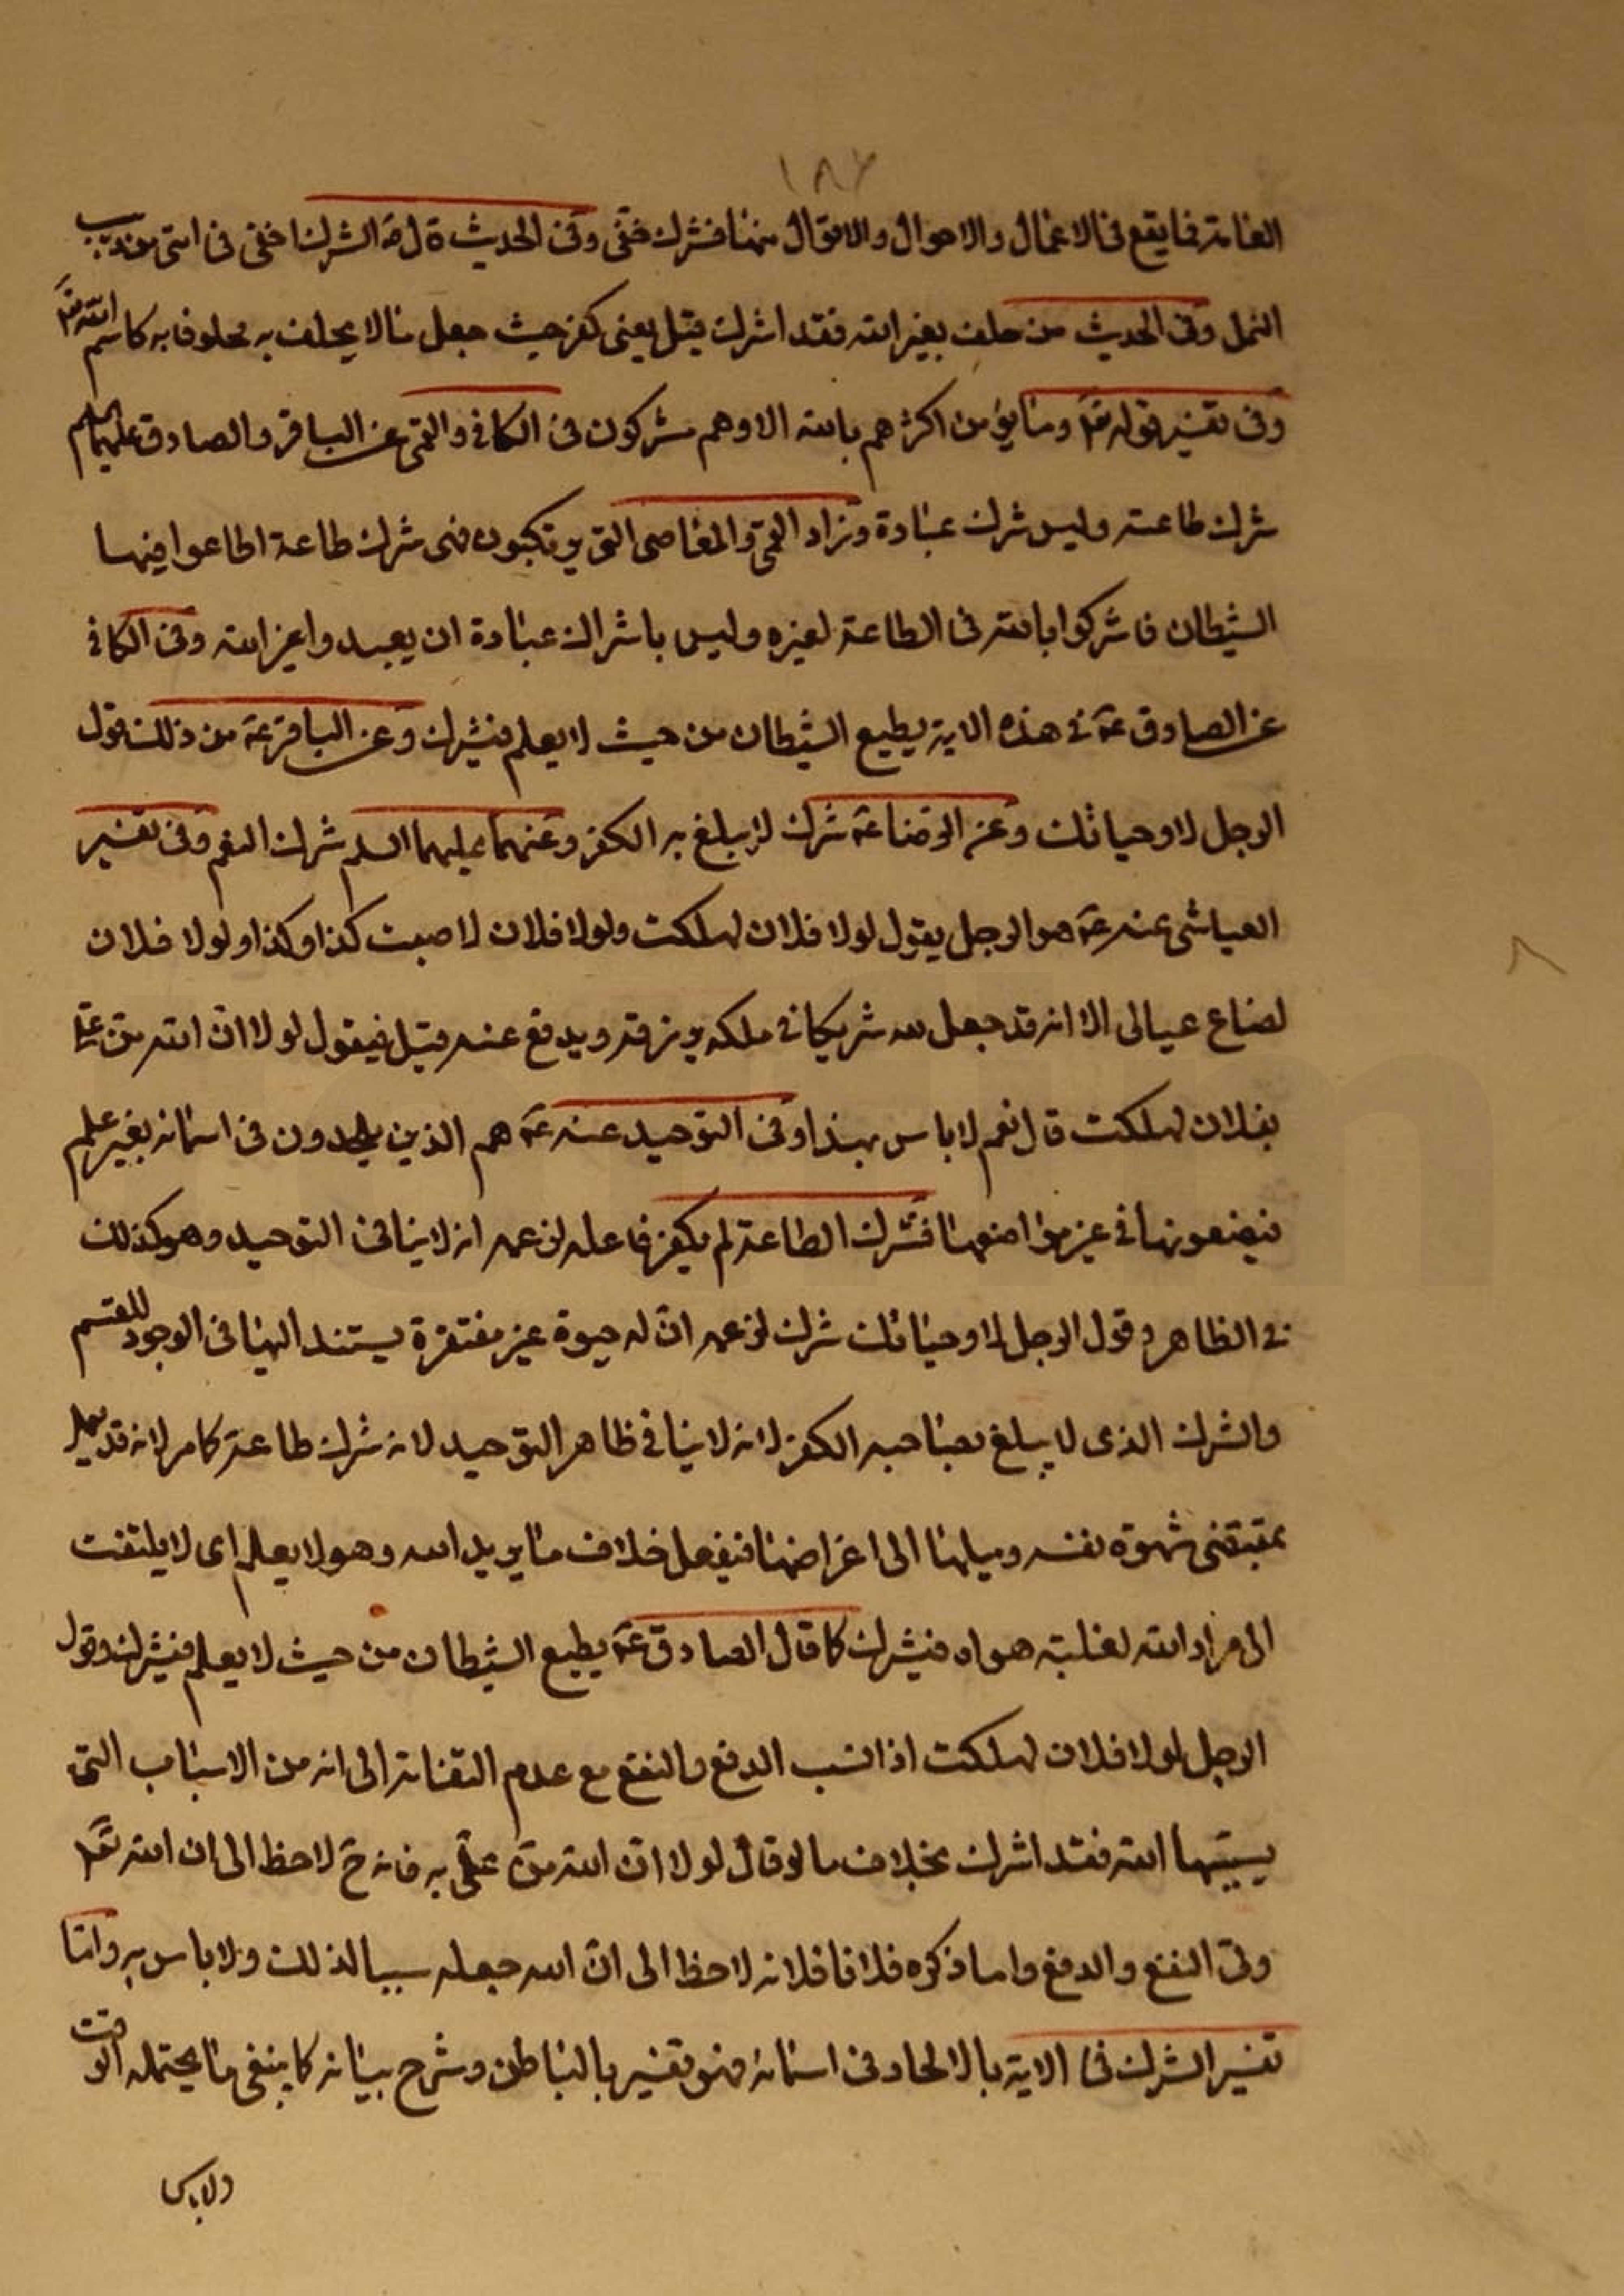 ١٨٢
العامة فما يقع في الاعمال والاحوال والاقوال منها فشرك خفي وفي الحديث قال ص الشرك اخفى في امتي من دبيب
النمل وفي الحديث من حلف بغير الله فقد اشرك قيل يعني كفر حيث جعل ما لا يحلف به محلوفا به كاسم الله تع
وفي تفسير قوله تع وما يؤمن اكثرهم بالله الا وهم مشركون في الكافي والقمي عن الباقر والصادق عليهما السلم
شرك طاعة وليس شرك عبادة وزاد القمي والمعاصي التي يرتكبون فهي شرك طاعة اطاعوا فيها
الشيطان فاشركوا بالله في الطاعة لغيره وليس باشراك عبادة ان يعبدوا غير الله وفي الكافي
عن الصادق ع في هذه الاية يطيع الشيطان من حيث لا يعلم فيشرك وعن الباقر ع من ذلك قول
الرجل لا وحياتك وعن الرضا ع شرك لا يبلغ به الكفر وعنهما عليهما السلم شرك النعم وفي تفسير
العياشي عنه ع هو الرجل يقول لولا فلان لهلكت ولولا فلان لاصبت كذا وكذا ولولا فلان
لضاع عيالي الا انه قد جعل لله شريكا في ملكه يرزقه ويدفع عنه قيل فيقول لولا ان الله من علي
بفلان لهلكت قال نعم لا باس بهذا وفي التوحيد عنه ع هم الذين يلحدون في اسمائه بغير علم
فيضعونها في غير مواضعها فشرك الطاعة لم يكفر فاعله لزعمه انه لا ينافي التوحيد وهو كذلك
في الظاهر وقول الرجل لا وحياتك شرك لزعمه ان له حيوة غير مفتقرة يستند اليها في الوجود للقسم
والشرك الذي لا يبلغ بصاحبه الكفر لانه لا ينافي ظاهر التوحيد لانه شرك طاعة كما مر لانه قد يعمل
بمقتضى شهوة نفسه وميلها الى اغراضها فيفعل خلاف ما يريد الله وهو لا يعلم اي لا يلتفت
الى مراد الله لغلبة هواه فيشرك كما قال الصادق ع يطيع الشيطان من حيث لا يعلم فيشرك وقول
الرجل لولا فلان لهلكت اذا نسب الدفع والنفع مع عدم التفاته الى انه من الاسباب التي
يسببها الله فقد اشرك بخلاف ما لو قال لولا ان الله من علي به فانه ح لاحظ الى ان الله تع
ولي النفع والدفع واما ذكره فلانا فلانه لاحظ الى ان الله جعله سببا لذلك ولا باس به واما
تفسير الشرك في الاية بالالحاد في اسمائه فهو تفسير بالباطن وشرح بيانه كما ينبغي ما يحتمله الوقت
ولا باس